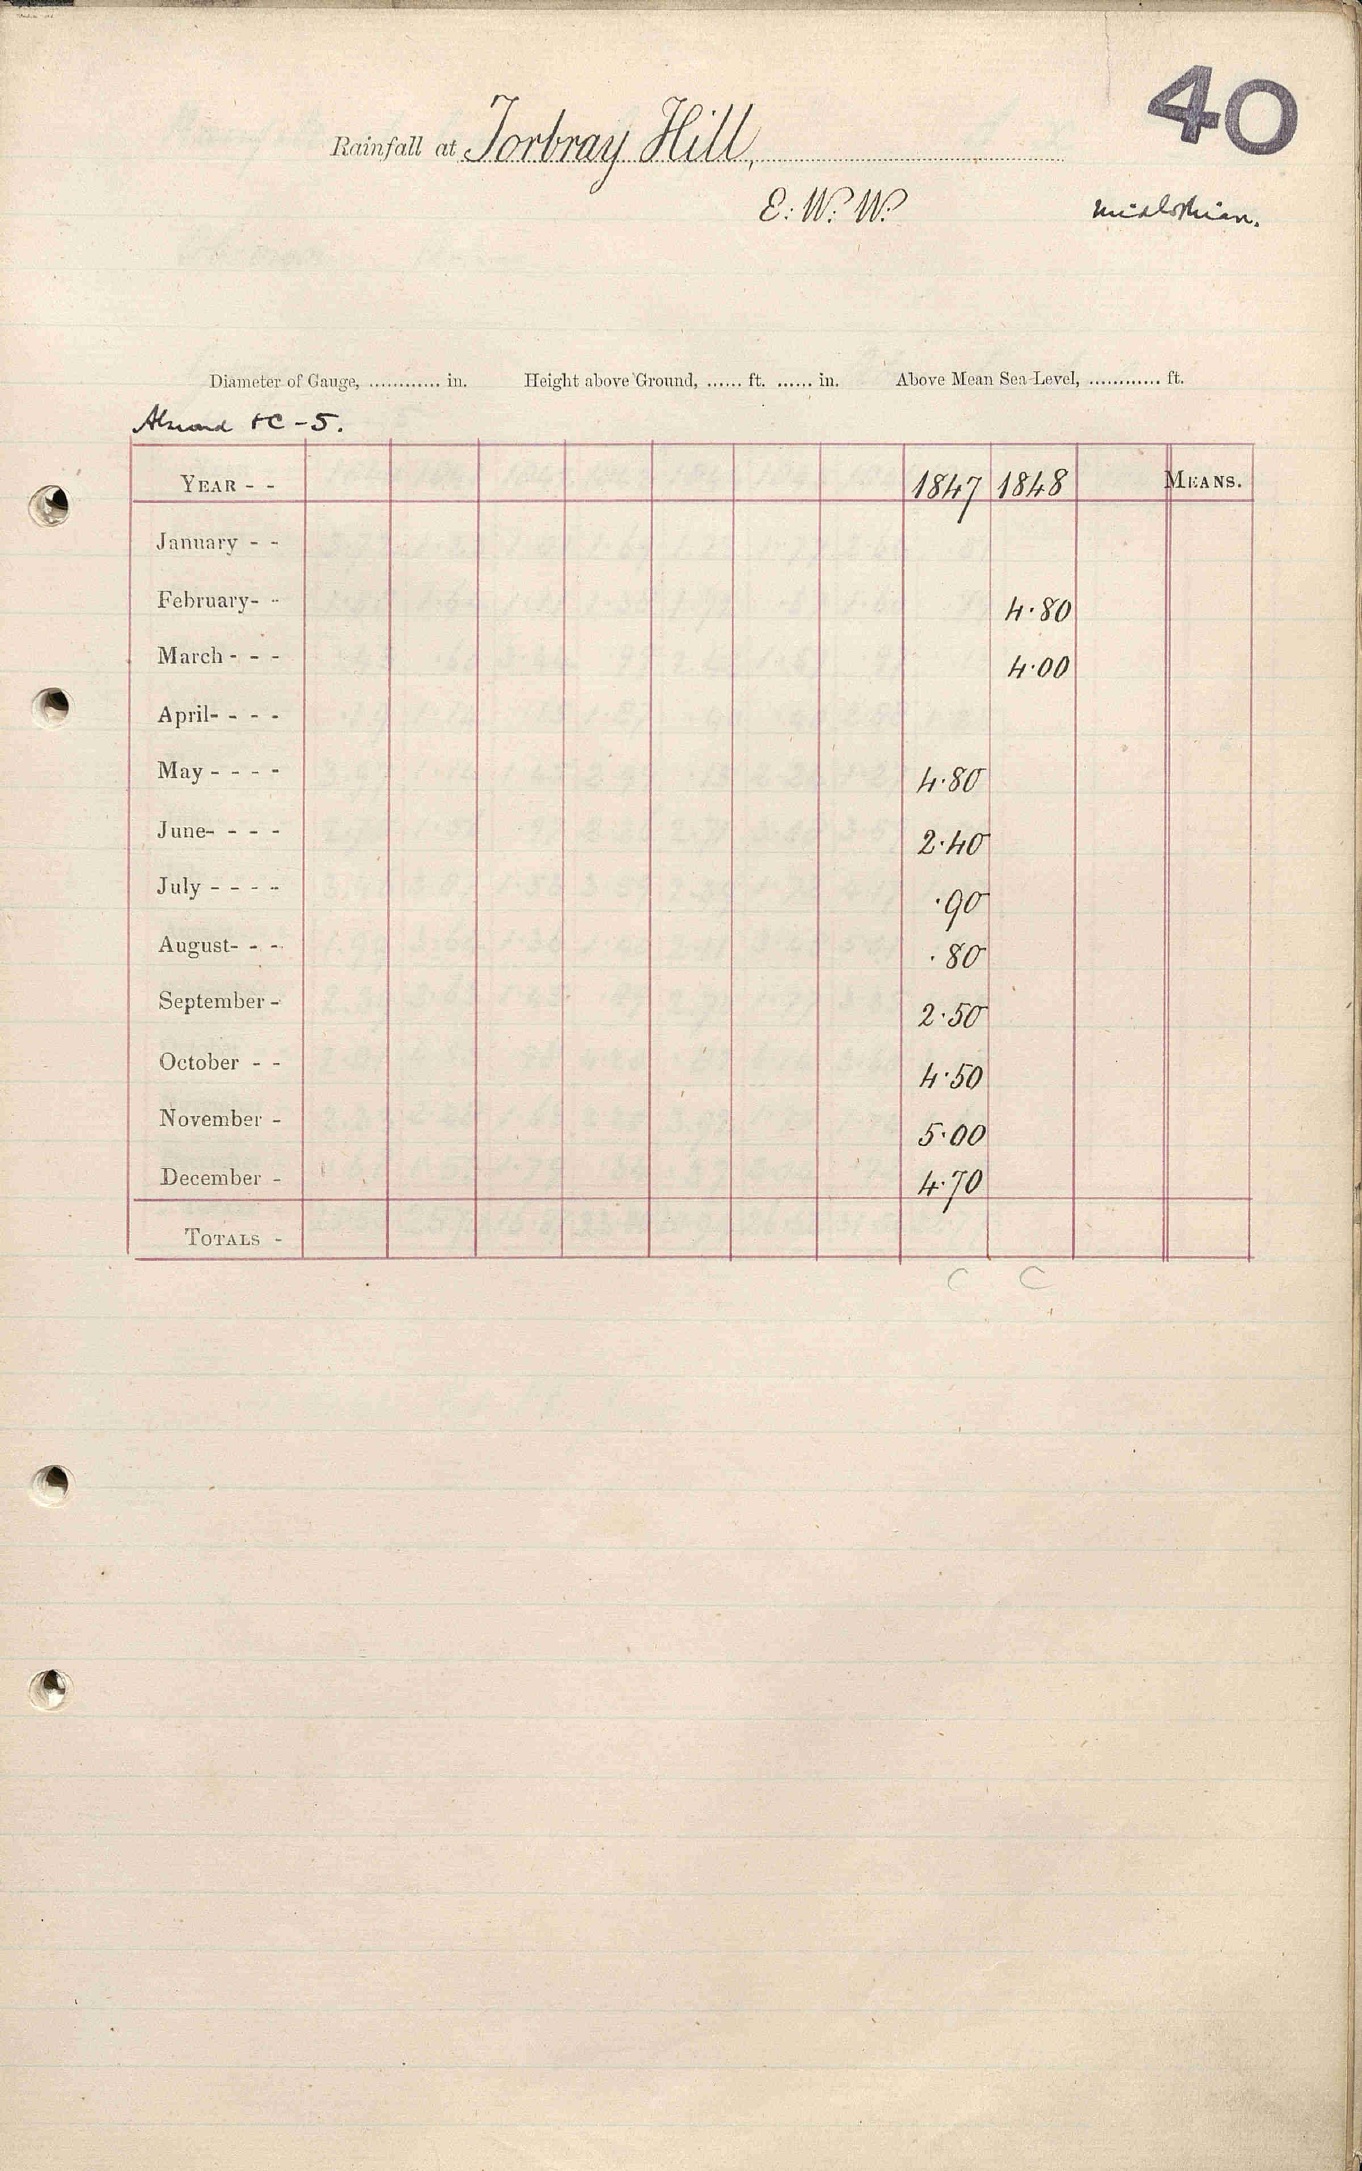 40
Rainfall at Torbray Hill,
E. W. W.
Midlothian.
Diameter of Gauge, ............ in. Height above Ground, ...... ft. ...... in. Above Mean Sea Level, ............ ft.
Almond + C - 5.
YEAR - - 1847 1848 MEANS.
January - -
February- - 4.80
March - - - 4.00
April- - - -
May - - - - 4.80
June- - - - 2.40
July - - - - .90
August- - - .80
September - 2.50
October - - 4.50
November - 5.00
December - 4.70
TOTALS -
C C